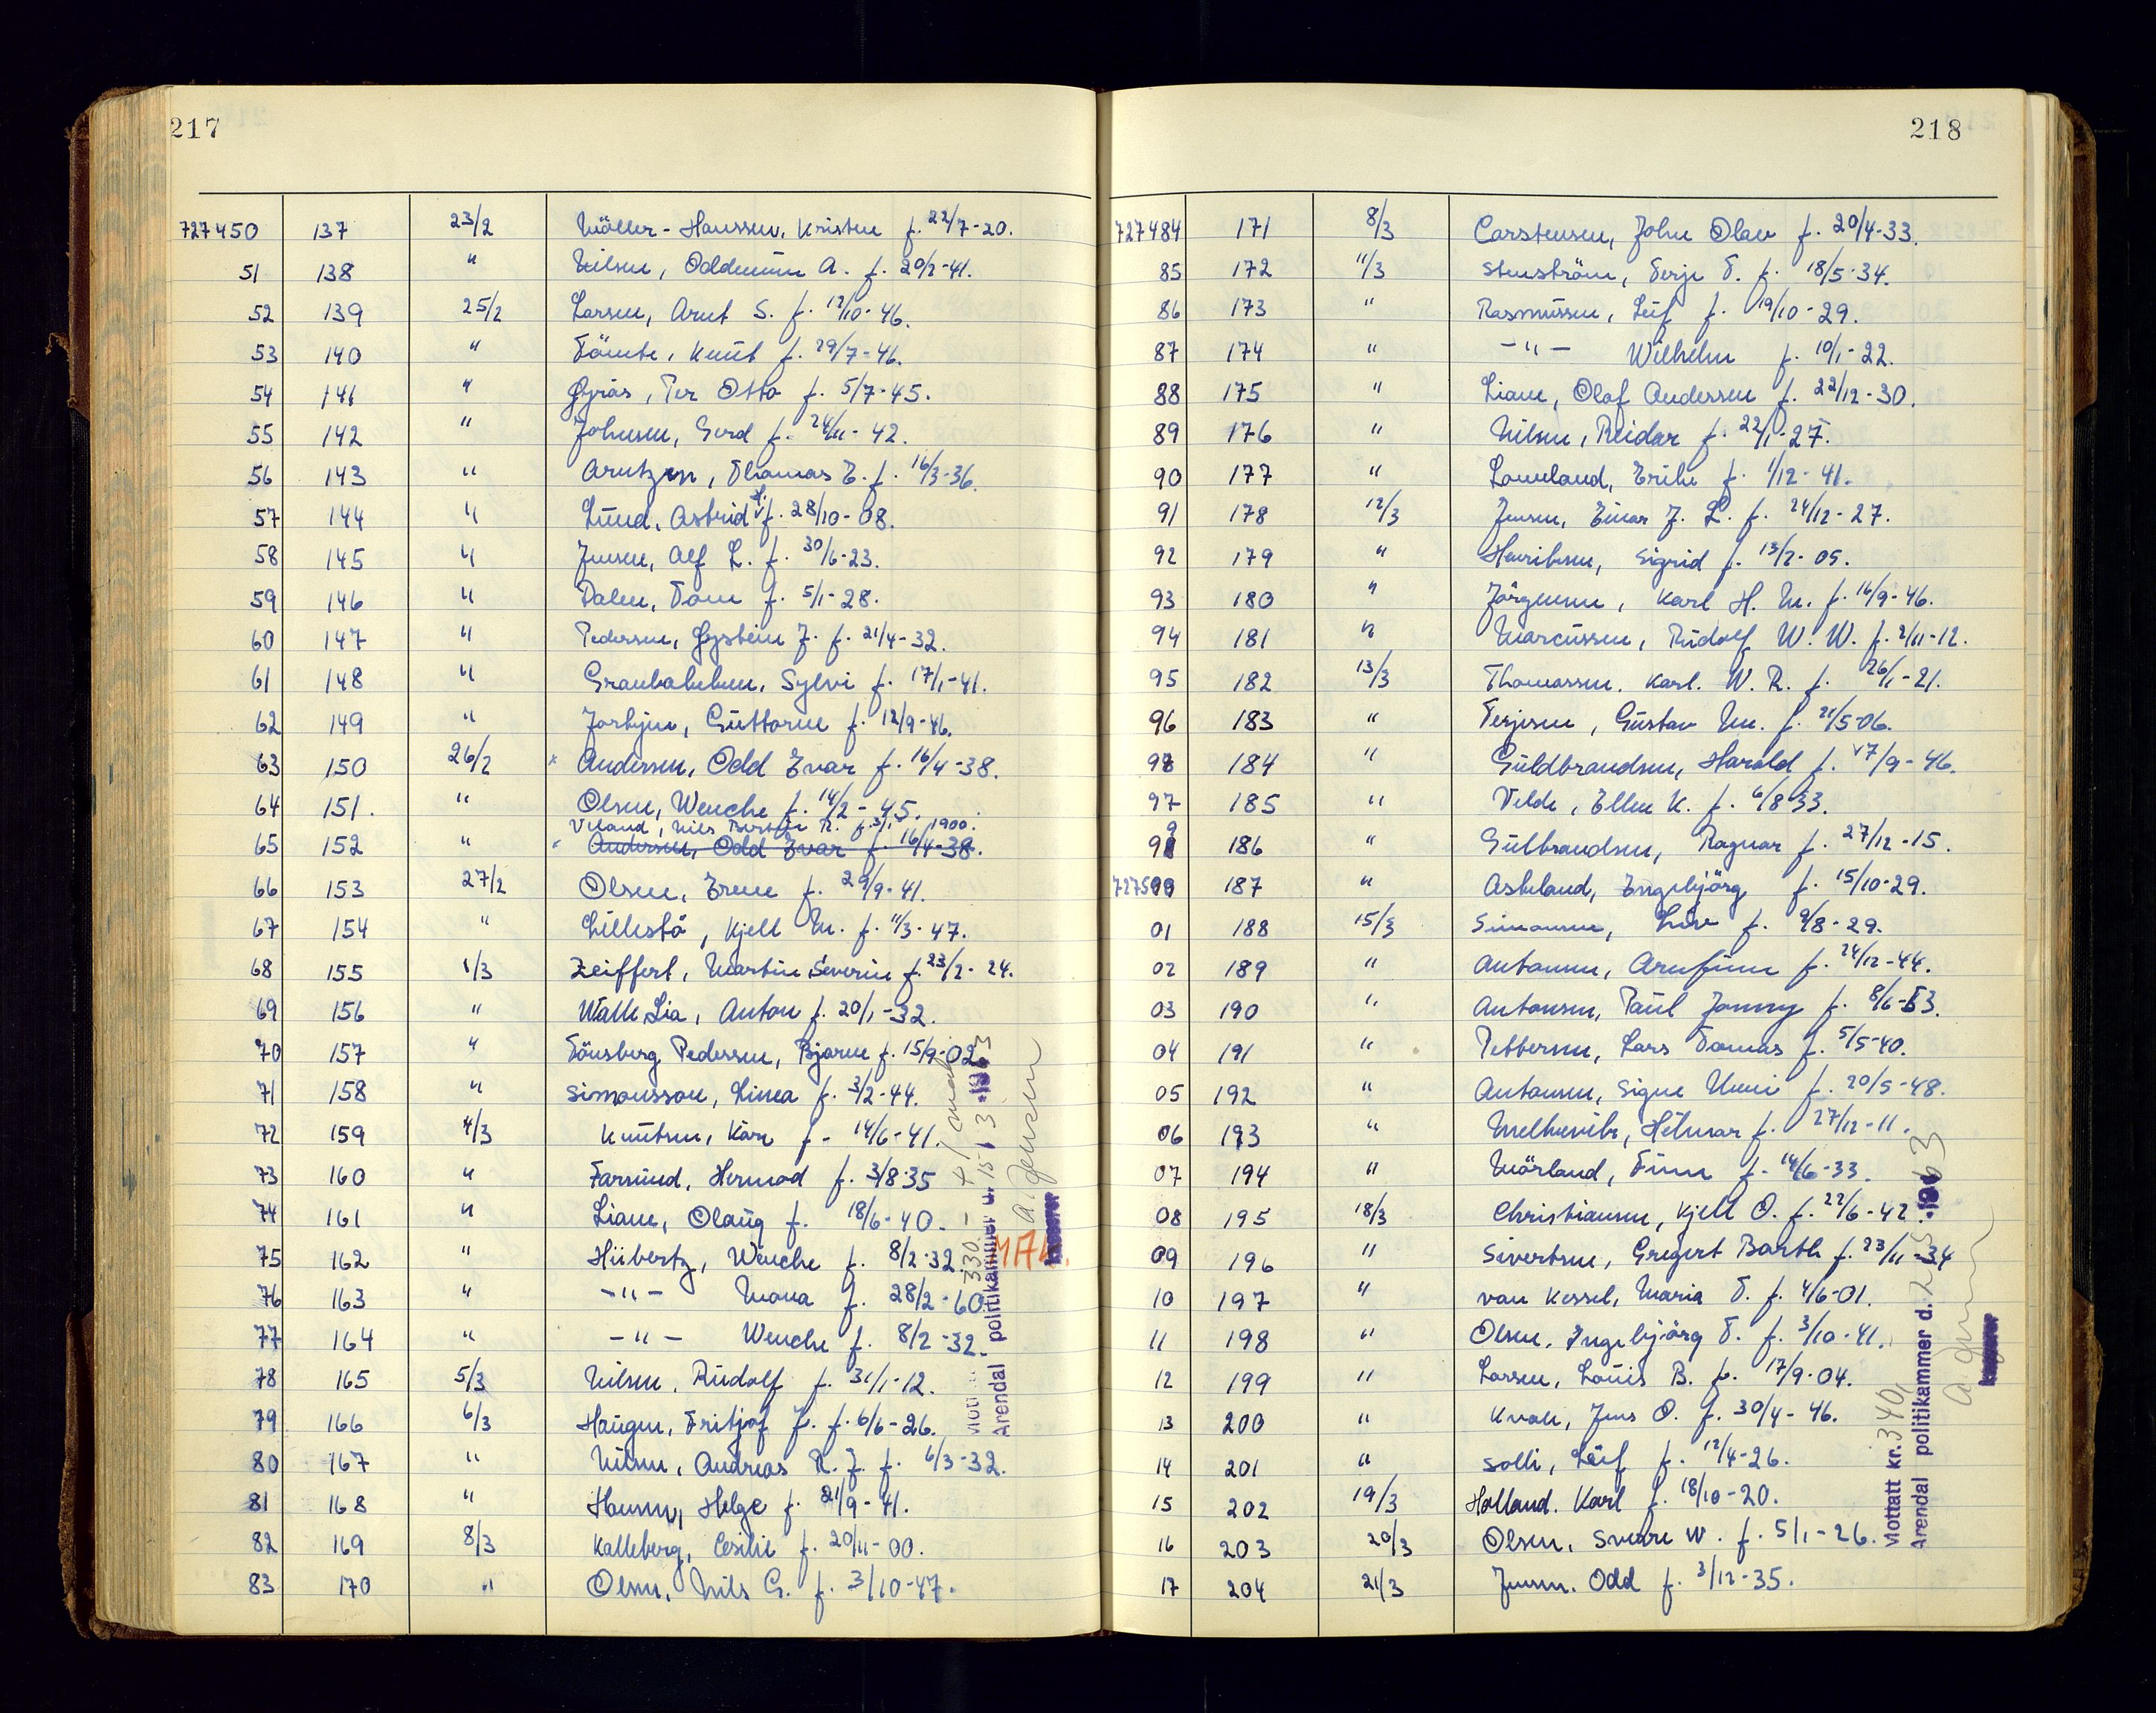 217
727450 137 23/2 Möller-Hanssen, Kristen f. 22/7-20.
51 138 " Nilsen, Oddmunn A. f. 20/2-41.
52 139 25/2 Larsen, Arnt S. f. 12/10-46.
53 140 " Tömte, Knut f. 29/7-46.
54 141 " Gjerås, Per Otto f. 5/7-45.
55 142 " Johnsen, Gerd f. 24/11-42.
56 143 " Arntzen, Thomas E. f. 16/3-36.
57 144 " Lund, Astrid f. 28/10-08.
58 145 " Jensen, Alf L. f. 30/6-23.
59 146 " Dalen, Tom f. 5/1-28.
60 147 " Pedersen, Øystein J. f. 21/4-32.
61 148 " Sylvi f. 17/1-41.
62 149 " Torbjørn, Guttorm f. 12/9-46.
63 150 26/2 x Andersen, Odd Ivar f. 16/4-38.
64 151. " Olsen, Wenche f. 14/2-45.
Veland, Nils R. f. 3/1 1900.
65 152 " Andersen, Odd Ivar f. 16/4-38.
66 153 27/2 Olsen, Irene f. 29/9-41.
67 154 " Lillestö, Kjell M. f. 11/3-47.
68 155 1/3 Zeiffert, Martin Severin f. 23/2-24.
69 156 " Walle Lia, Anton f. 20/1-32.
70 157 " Tönsberg Pedersen, Bjarne f. 15/9-02
71 158 " Simonsson, Linea f. 3/2-44.
72 159 4/3 Knutsen, Kåre f- 14/6-41.
73 160 " Farsund, Hermod f. 3/8-35
74 161 " Liane, Olaug f. 18/6-40.
75 162 " Hübertz, Wenche f. 8/2-32.
76 163 " -"- Mona f. 28/2-60
77 164 " -"- Wenche f. 8/2-32.
78 165 5/3 Nilsen, Rudolf f. 31/1-12.
79 166 6/3 Haugen, Fritjof J. f. 6/6-26.
80 167 " Nilsen, Andreas R. J. f. 6/3-32.
81 168 " Hansen, Helge f. 21/9-41.
82 169 8/3 Kalleberg, Cesilie f. 20/11-00.
83 170 " Olsen, Nils G. f. 3/10-47.
330.-
Arendal politikammer d. 15/3 1963
A. Jensen
kasserer
218
727484 171 8/3 Carstensen, John Olav f. 20/4-33.
85 172 11/3 Stenström, Terje T. f. 18/5-34.
86 173 " Rasmussen, Leif f. 19/10-29.
87 174 " -"- Wilhelm f. 10/1-22.
88 175 " Liane, Olaf Andersen f. 22/12-30.
89 176 " Nilsen, Reidar f. 22/1-27.
90 177 " Lauveland, Erik f. 1/12-41.
91 178 12/3 Jensen, Einar J. L. f. 24/12-27.
92 179 " Henriksen, Sigrid f. 13/2-05.
93 180 " Jörgensen, Karl H. M. f. 16/9-46.
94 181 " Marcussen, Rudolf W. W. f. 2/11-12.
95 182 13/3 Thomassen. Karl. W. R. f. 26/1-21.
96 183 " Terjesen, Gustav M. f. 21/5-06.
98 184 " Guldbrandsen, Harald f. 17/9-46.
97 185 " Velde, Ellen K. f. 6/8-33.
99 186 " Gulbrandsen, Ragnar f. 27/12-15.
727500 187 " Askeland, Engebjörg f. 15/10-29.
01 188 15/3 Simonsen, Liv f. 9/8-29.
02 189 " Antonsen, Arnfinn f. 24/12-44.
03 190 " Antonsen, Paul Jonny f. 8/6-53.
04 191 " Pettersen, Lars Tomas f. 5/5-40.
05 192 " Antonsen, Signe Unni f. 20/5-48.
06 193 " Hilmar f. 27/12-11.
07 194 " Mörland, Finn f. 14/6-33.
08 195 18/3 Christiansen, Kjell O. f. 22/6-42.
09 196 " Sivertsen, Gregert Barth f. 23/11-34
10 197 " van Kessel, Maria T. f. 4/6-01.
11 198 " Olsen, Ingebjörg T. f. 3/10-41.
12 199 " Larsen, Louis B. f. 17/9-04.
13 200 " Kvale, Jens O. f. 30/4-46.
14 201 " Solli, Leif f. 12/4-26.
15 202 19/3 Holland. Karl f. 18/10-20.
16 203 20/3 Olsen, Sverre W. f. 5/1-26.
17 204 21/3 Jensen. Odd f. 3/12-35.
Mottatt kr. 340,
Arendal politikammer d. 1963
A. Jensen
kasserer